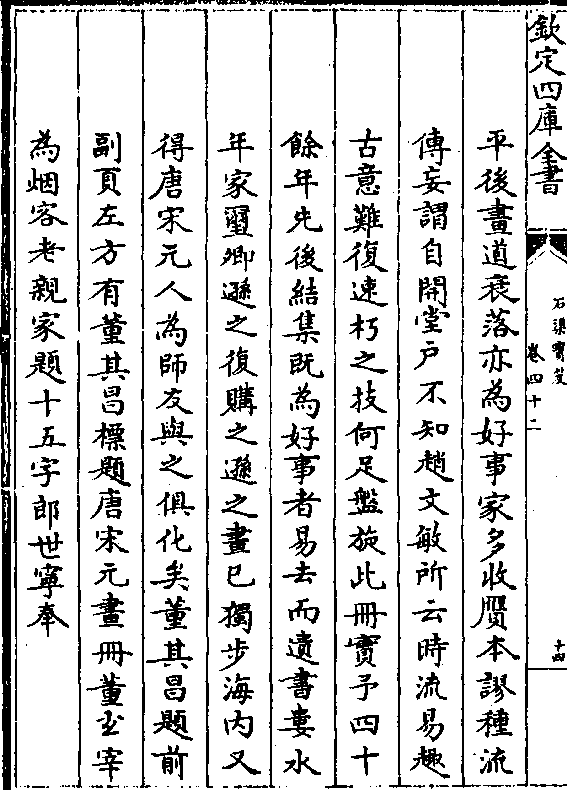 欽定四庫全書
石渠寶笈
卷四十二
十四
平後畫道衰落亦為好事家多收贋本謬種流
傳妄謂自開堂户不知趙文敏所云時流易趣
古意難復速朽之技何足盤旋此冊實予四十
餘年先後結集既為好事者易去而遺書婁水
年家璽卿遜之復購之遜之畫已獨步海内又
得唐宋元人為師友與之俱化矣董其昌題前
副頁左方有董其昌標題唐宋元畫冊董玄宰
為烟客老親家題十五字郎世寧奉